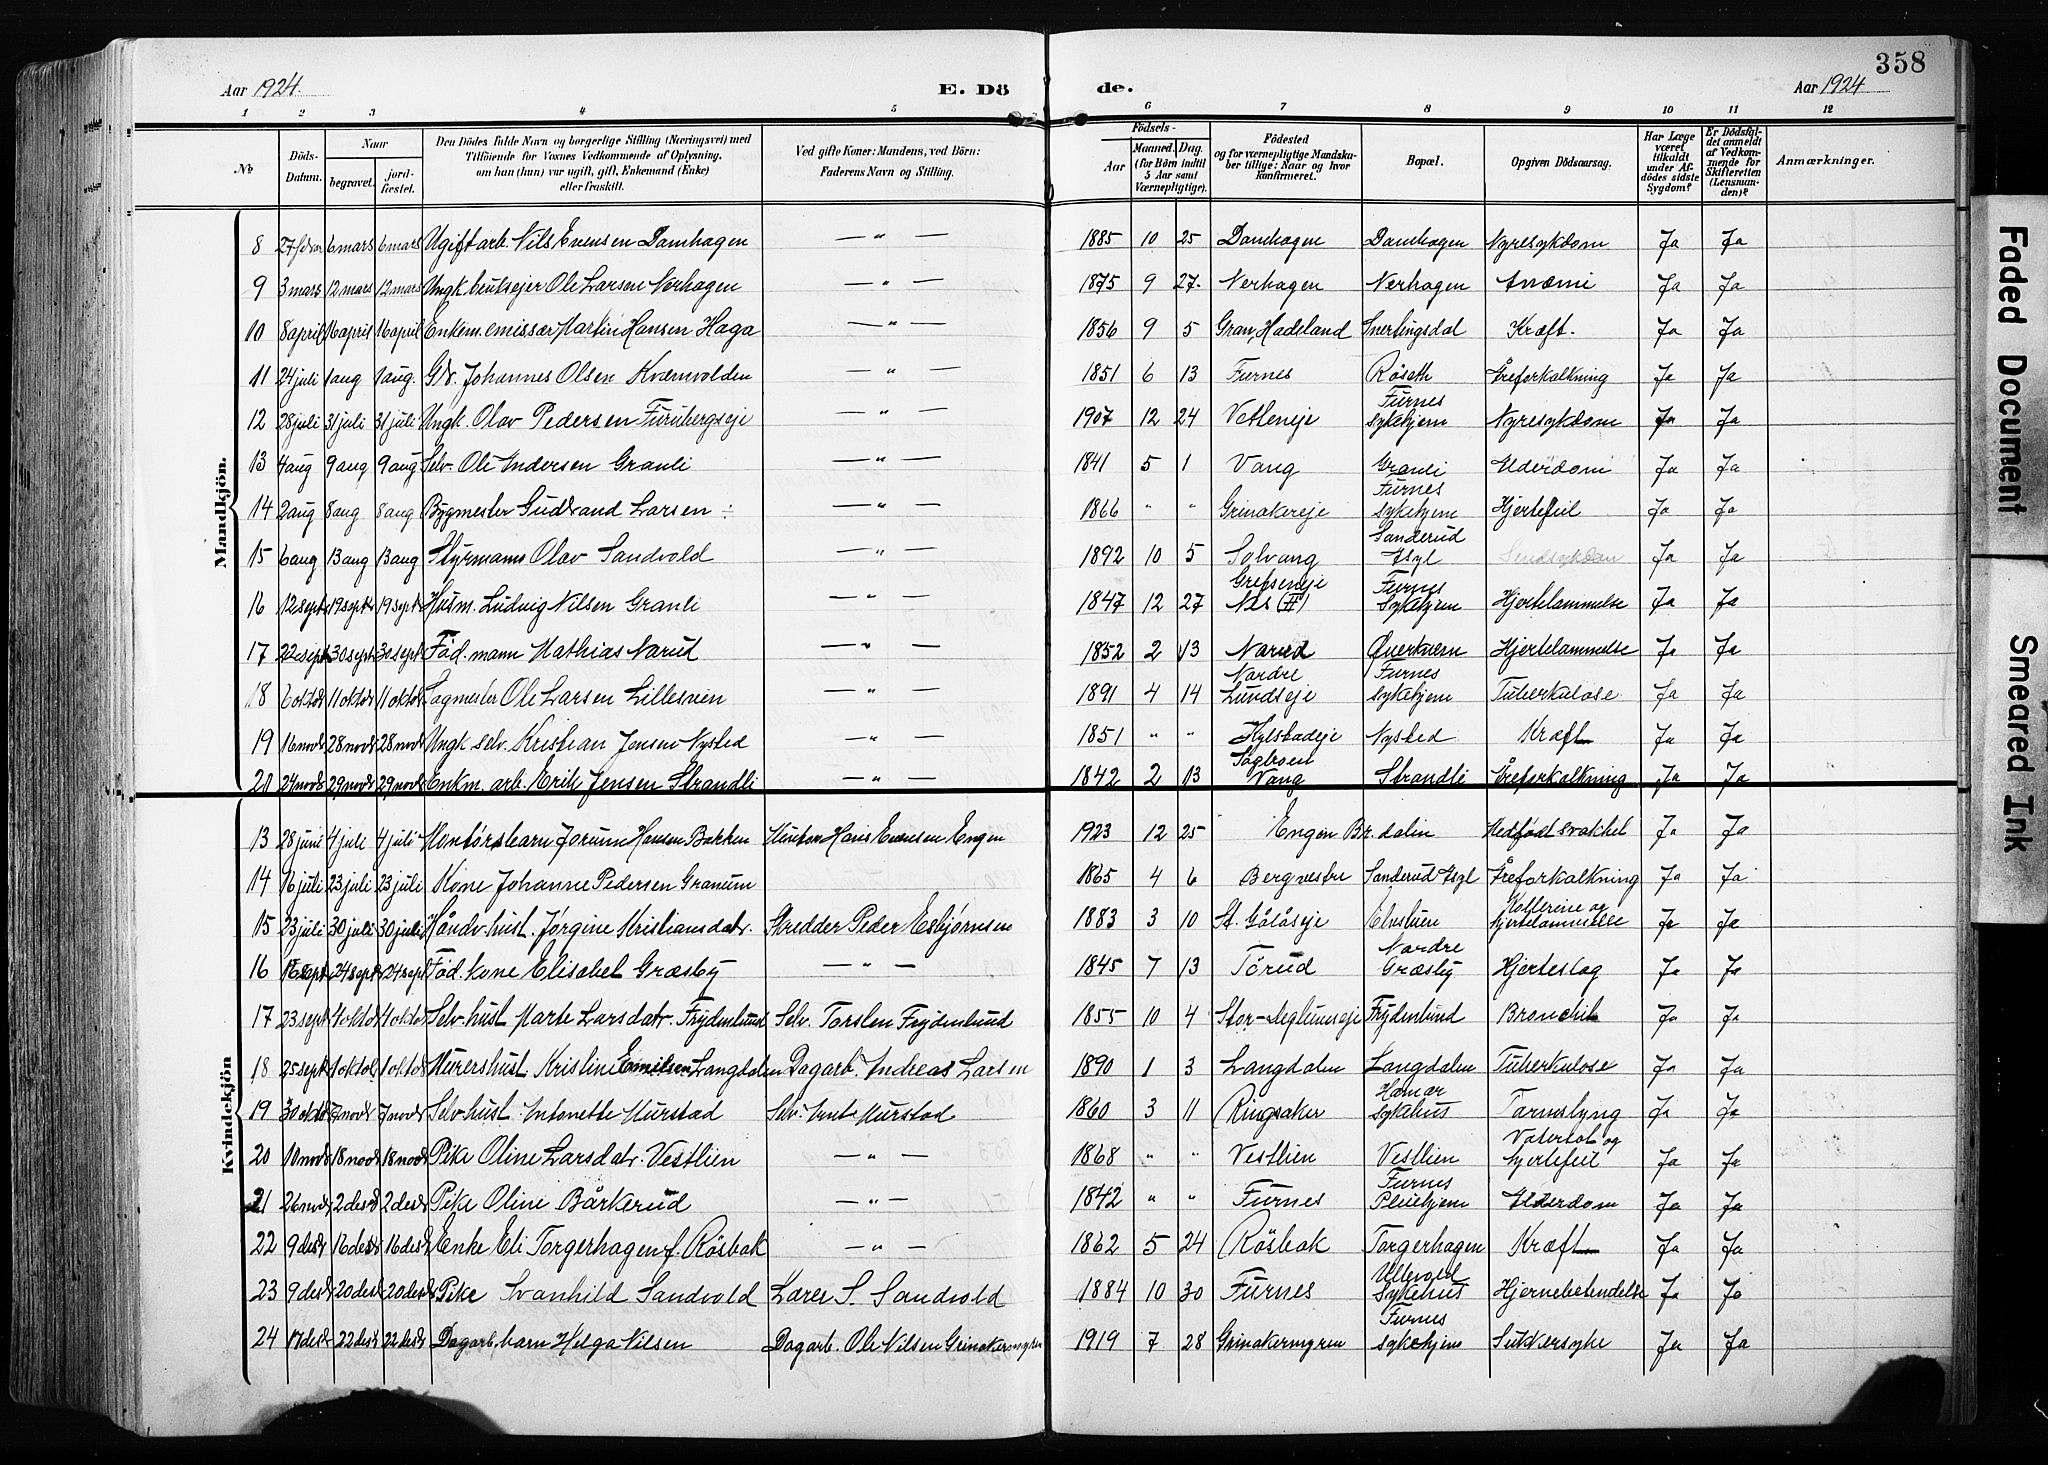 358
Aar 1924.
E. Dö
de.
Aar 1924
1 2 3 4 5 6 7 8 9 10 11 12
No
Döds-Datum.
Naar
begravet.
jordfæstet.
Den Dödes fulde Navn og borgerlige Stilling (Næringsvei) med Tilföiende for Voxnes Vedkommende af Oplysning, om han (hun) var ugift, gift, Enkemand (Enke) eller fraskilt.
Ved gifte Koner: Mandens, ved Börn: Faderens Navn og Stilling.
Födsels-
Aar
Maaned. Dag.
(for Börn indtil 5 Aar samt Værnepligtige).
Födested
og for værnepligtige Mandskaber tillige: Naar og hvor konfirmeret.
Bopæl.
Opgiven Dödsaarsag.
Har Læge været tilkaldt under Afdödes sidste Sygdom?
Er Dödsfaldet anmeldt af Vedkommende for Skifteretten (Lensmanden)?
Anmærkninger.
Mandkjön.
8 6 mars 6 mars Ugift arb. Nils Evensen Damhagen — " — 1885 10 25 Damhagen Damhagen Nyresykdom Ja Ja
9 3 mars 12 mars 12 mars Ungk. bruksejer Ole Larsen Nerhagen — " — 1875 9 27. Nerhagen Nerhagen Anæmi Ja Ja
10 8 april 16 april 16 april Enkem. emissær Martin Hansen Haga — " — 1856 9 5 Gran, Hadeland Snertingsdal Kræft. Ja Ja
11 24 juli 1 aug 1 aug. Johannes Olsen Kværnvolden — " — 1851 6 13 Furnes Röseth Åreforkalkning Ja Ja
12 28 juli 31 juli 31 juli Ungk. Olav Pedersen Furubergseje — " — 1907 12 24 Vetleneje Furnes sykehjem Nyresykdom Ja Ja
13 4 aug 9 aug 9 aug Selv. Ole Andersen Granli — " — 1841 5 1 Vang Granli Alderdom Ja Ja
14 2 aug 8 aug 8 aug Bygmester Gudbrand Larsen — " — 1866 " " Grinakereje Furnes sykehjem Hjertefeil Ja Ja
15 6 aug 13 aug 13 aug Styrmann Olav Sandvold — " — 1892 10 5 Solvang Sanderud Asyl Sindsykdom Ja Ja
16 12 sept 19 sept 19 sept Husm. Ludvig Nilsen Granli — " — 1847 12 27 Grefseneje Nes (H) Furnes Sykehjem Hjertelammelse Ja Ja
17 22 sept 30 sept 30 sept Föd. mann Mathias Narud — " — 1852 2 13 Narud Øverkvern Hjertelammelse Ja Ja
18 6 oktbr 11 oktbr 11 oktbr Sagmester Ole Larsen Lillesveen — " — 1891 4 14 Nordre Lundseje Furnes sykehjem Tuberkulose Ja Ja
19 16 novbr 28 novbr 28 novbr Ungk. selv. Kristian Jensen Nysted — " — 1851 " " Hylstadeje Nysted Kræft Ja Ja
20 24 novbr 29 novbr 29 novbr Enkm. arb. Erik Jensen Strandli — " — 1842 2 13 Vang Strandli Åreforkalkning Ja Ja
Kvindekjön
13 28 juni 4 juli 4 juli Montørsbarn Jorunn Hansen Bakken Montør Hans Evensen Engen 1923 12 25 Engen Br. dalen Medfødt svakhet Ja Ja
14 16 juli 23 juli 23 juli Kone Johanne Pedersen Granum 1865 4 6 Berg vestre Sanderud Asyl Åreforkalkning Ja Ja
15 23 juli 30 juli 30 juli Håndv. hust. Jørgine Kristiansdatr. Skredder Peder Esbjørnsen 1883 3 10 St. Gålåseje Elvelien hjertelammelse Ja Ja
16 16 sept 24 sept 24 sept Föd. kone Elisabet Græsby — " — 1845 7 13 Törud Nordre Græsby Hjerteslag Ja Ja
17 23 sept 4 oktbr 4 oktbr Selv. hust Marte Larsdatr. Frydenlund Selv. Torsten Frydenlund 1855 10 4 Stor-Meglumseje Frydenlund Bronchit Ja Ja
18 25 sept 1 oktbr. 1 oktbr Murershust. Kristine Emilsen Langdalen Dagarb. Andreas Larsen 1890 1 3 Langdalen Langdalen Tuberkulose Ja Ja
19 30 oktbr 7 novbr 7 novbr Selv. hust. Antonette Murstad Selv. Murstad 1860 3 11 Ringsaker Hamar Sykehus Tarmslyng Ja Ja
20 10 novbr 18 novbr 18 novbr Pike Oline Larsdatr. Vestlien — " — 1868 " " Vestlien Vestlien Vatersot og hjertefeil Ja Ja
21 26 novbr 2 desbr 2 desbr Pike Oline Bårkerud — " — 1842 " " Furnes Furnes Pleiehjem Alderdom Ja Ja
22 9 desbr 16 desbr 16 desbr Enke Eli Torgerhagen f. Rösbak — " — 1862 5 24 Rösbak Torgerhagen Kræft Ja Ja
23 9 desbr 20 desbr 20 desbr Pike Svanhild Sandvold Lærer S. Sandvold 1884 10 30 Furnes Ullevold Sykehus Hjernebetendelse Ja Ja
24 17 desbr 22 desbr 22 desbr Dagarb. barn Helga Nilsen Dagarb. Ole Nilsen Grinakermyren 1919 7 28 Grinakermyren Furnes sykehjem Sukkersyke Ja Ja
Faded Document
Smeared Ink